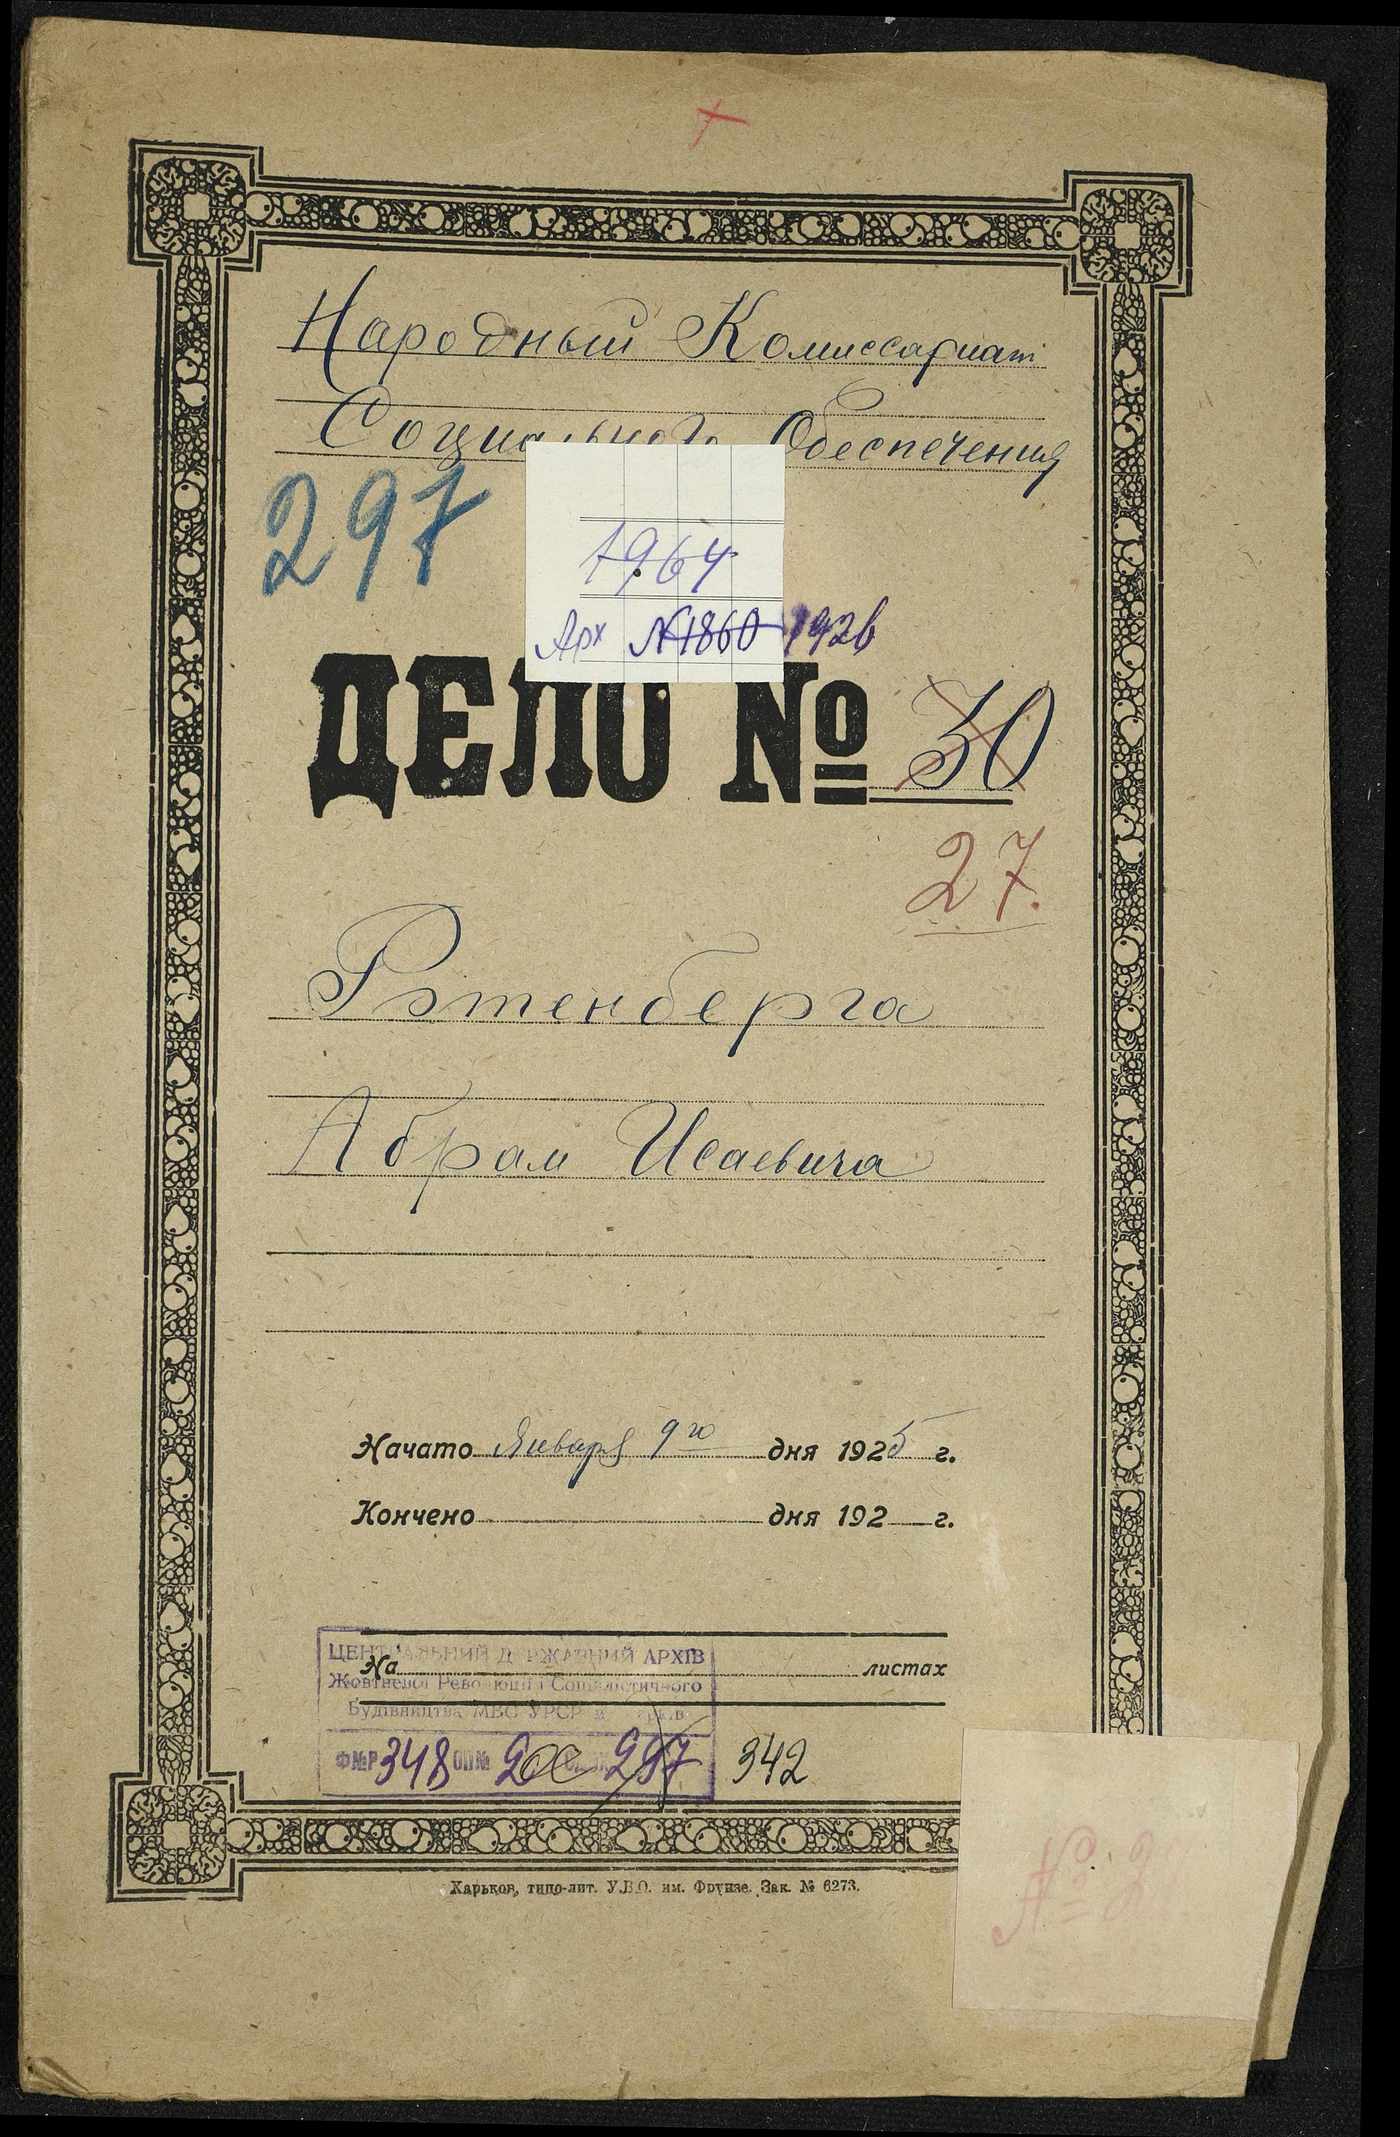 Народный Комиссариат
Социального Обеспечения
297
1964
Арх №1860 1926
ДЕЛО № 30
27.
Рэтенберга
Абрам Исаевича
Начато Января 9го дня 1925 г.
Кончено дня 192 г.
ЦЕНТРАЛЬНИЙ ДЕРЖАВНИЙ АРХІВ
На листах
Жовтневої Революції і Соціалістичного
Будівництва МВС УРСР
Ф№Р 348 ОП№ 297 342
Харьков, типо-лит. У.В.О. им. Фрунзе. Зак. № 6273.
№ 2